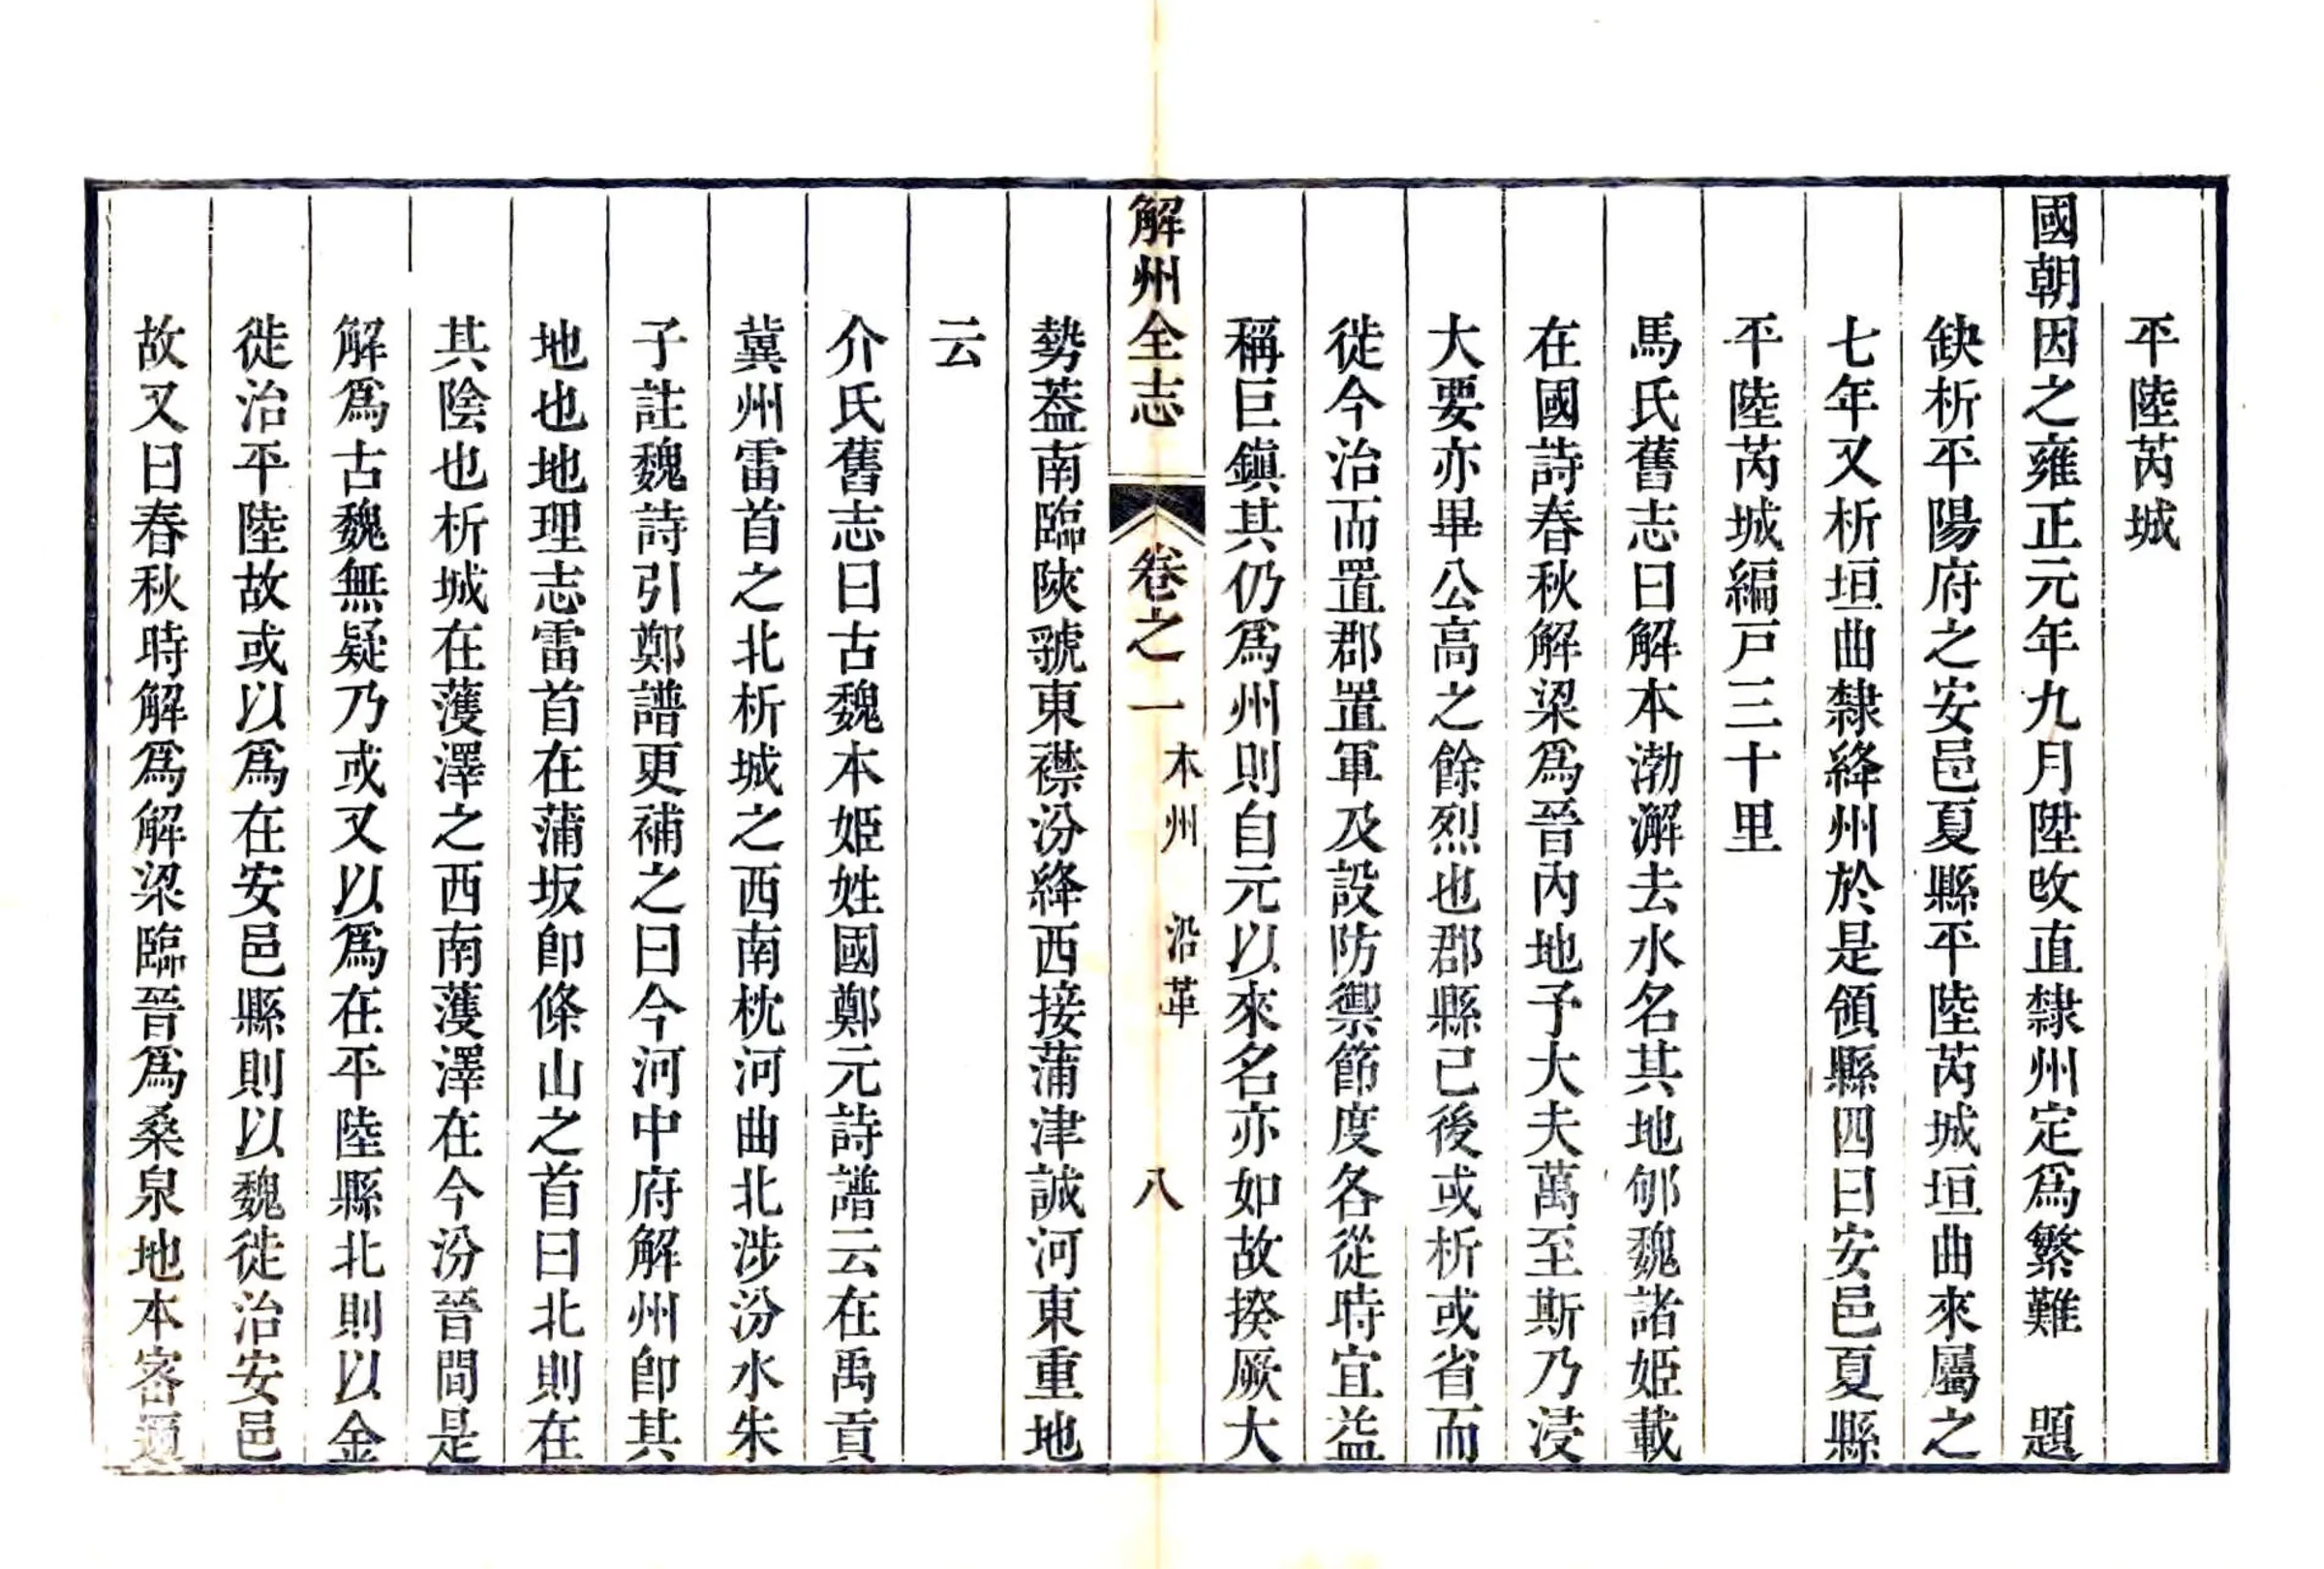 平陸芮城
國朝因之雍正元年九月陞改直隸州定爲繁難　題
缺析平陽府之安邑夏縣平陸芮城垣曲來屬之
七年又析垣曲隸絳州於是領縣四曰安邑夏縣
平陸芮城編戸三十里
馬氏舊志曰解本渤澥去水名其地郇魏諸姬載
在國詩春秋解梁爲晉內地予大夫萬至斯乃浸
大要亦畢公高之餘烈也郡縣已後或析或省而
徙今治而置郡置軍及設防禦節度各從時宜益
稱巨鎮其仍爲州則自元以來名亦如故揆厥大
解州全志　卷之一　本州　沿革　八
勢葢南臨陝虢東襟汾絳西接蒲津誠河東重地
云
介氏舊志曰古魏本姬姓國鄭元詩譜云在禹貢
冀州雷首之北析城之西南枕河曲北涉汾水朱
子註魏詩引鄭譜更補之曰今河中府解州卽其
地也地理志雷首在蒲坂卽條山之首曰北則在
其陰也析城在濩澤之西南濩澤在今汾晉間是
解爲古魏無疑乃或又以爲在平陸縣北則以金
徙治平陸故或以爲在安邑縣則以魏徙治安邑
故又曰春秋時解爲解梁臨晉爲桑泉地本密邇